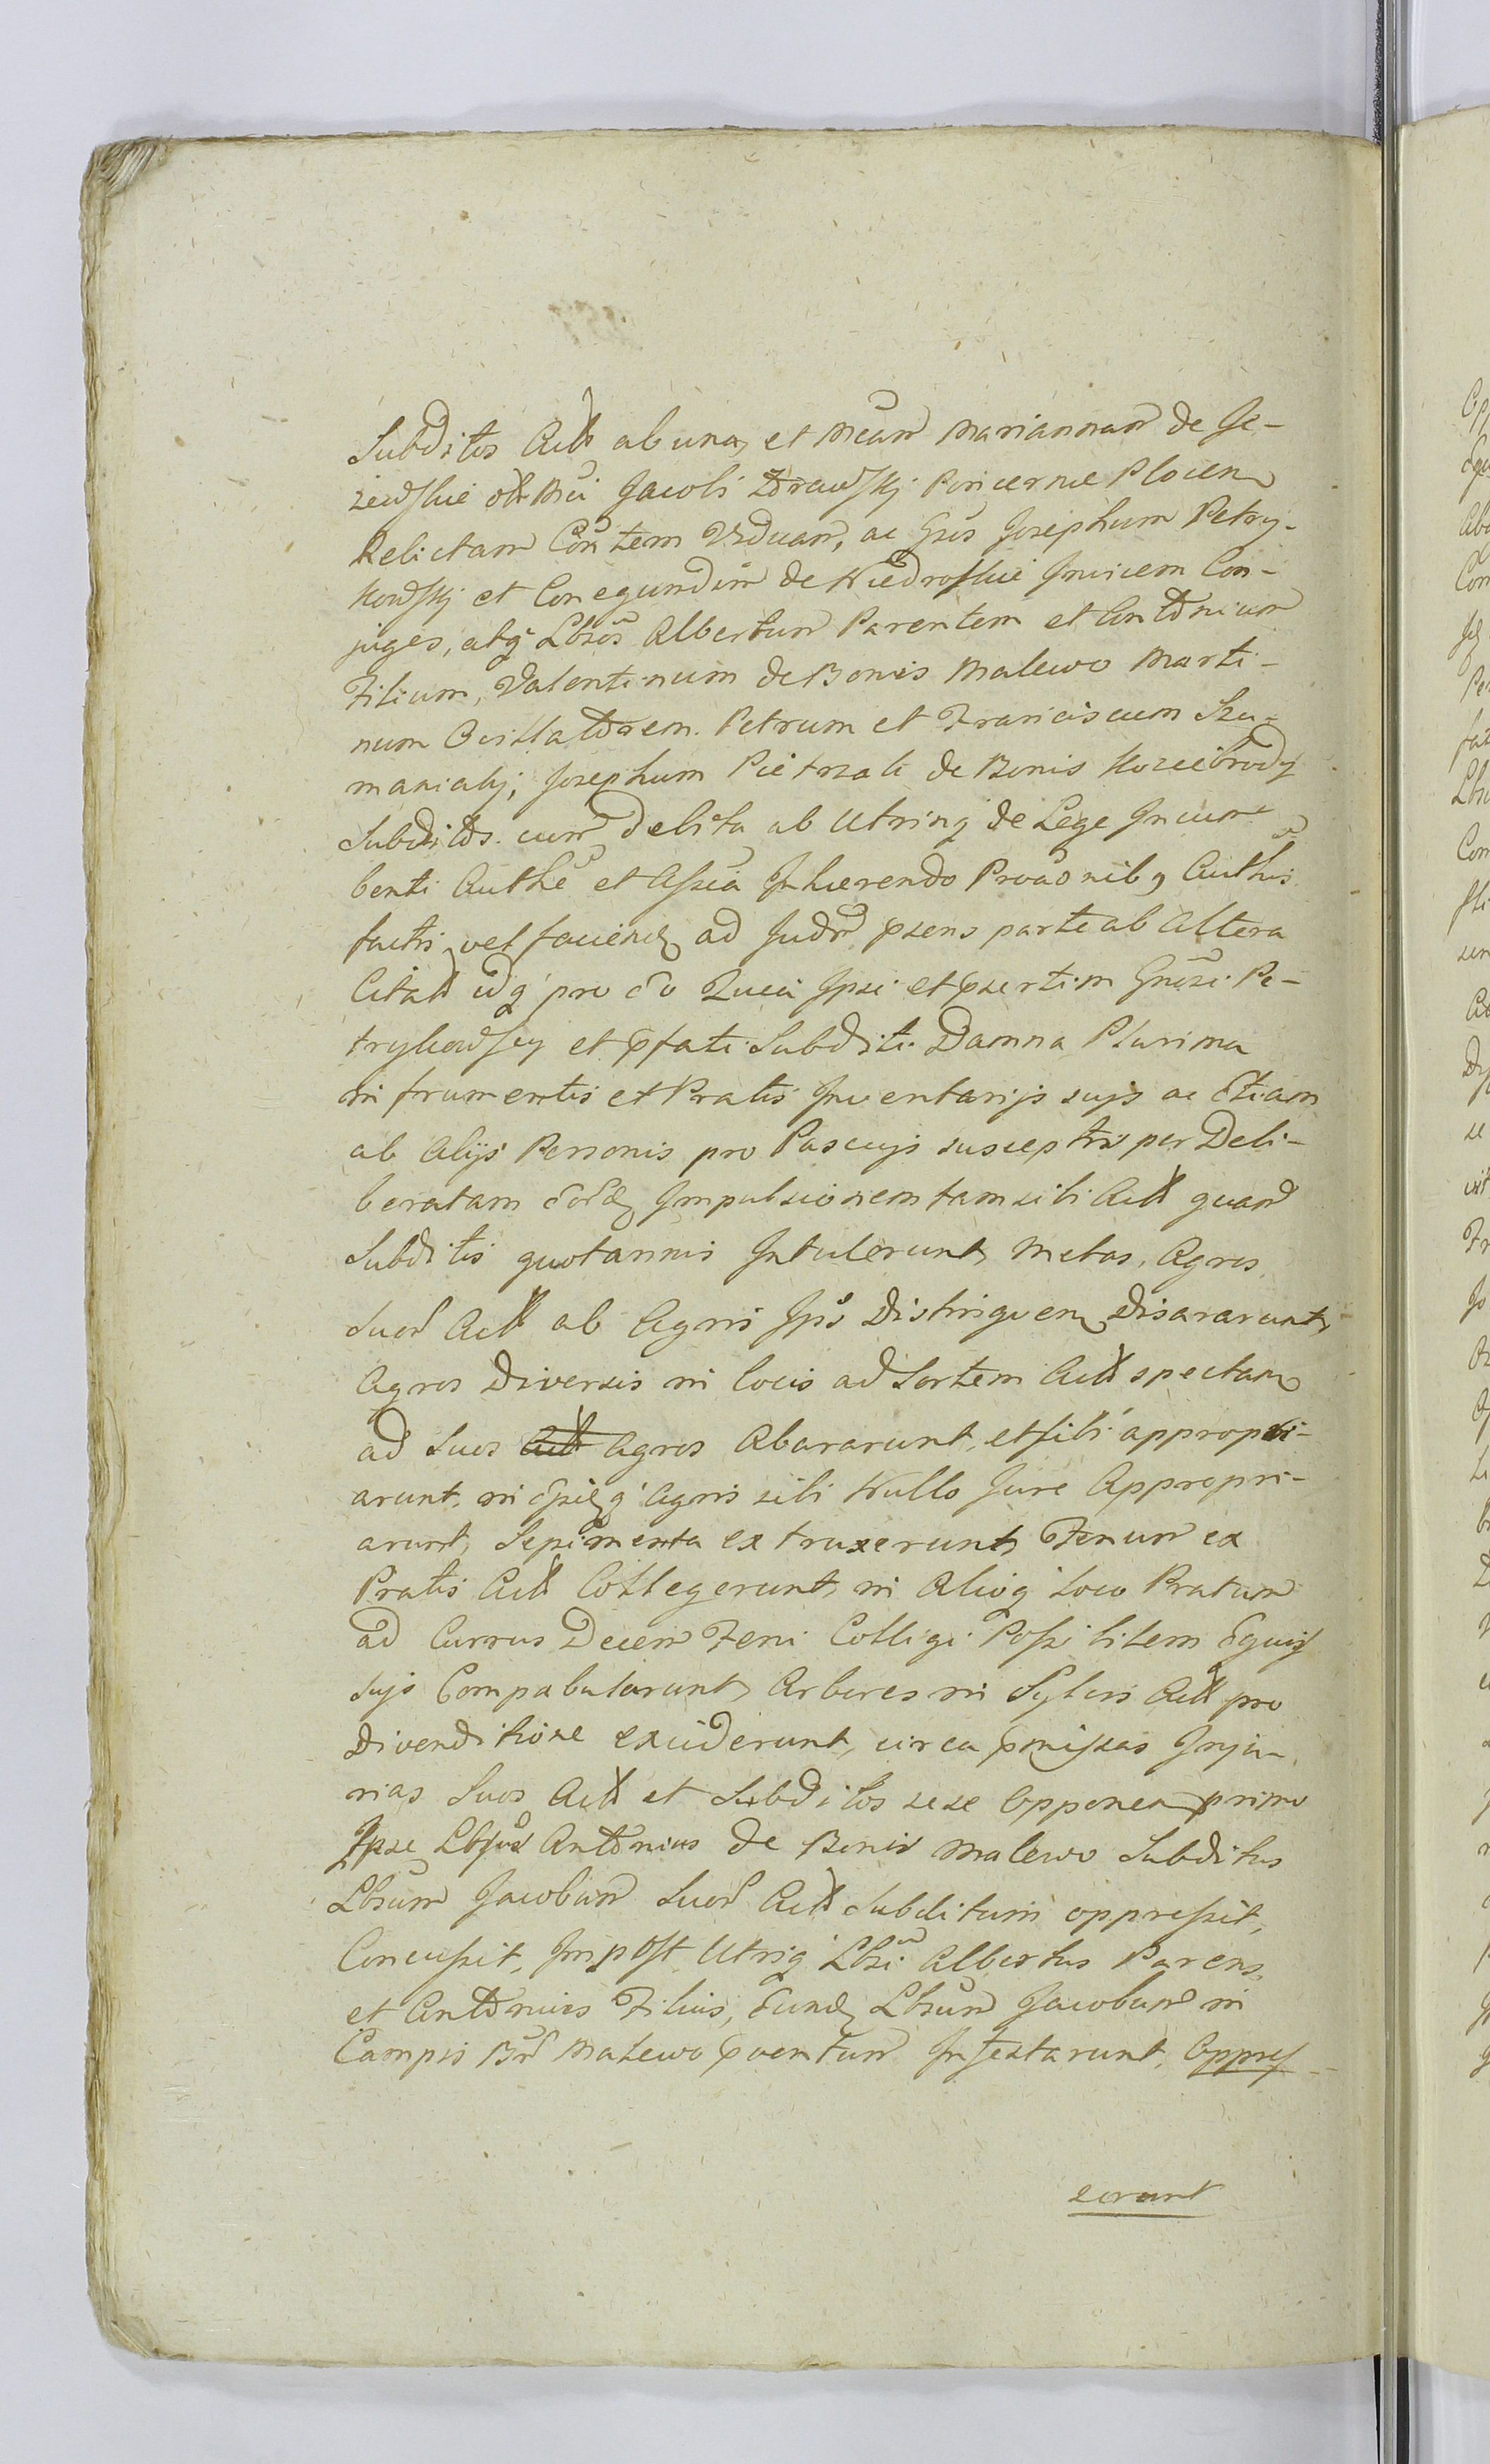 Subditos Actt ab una, et Mcam Mariannam de Je-
zewskie olr Mci Jacobi Zdrawskj Pincernae Plocen
Relictam Contem Viduam, ac Gsos Josephum Petry-
kowskj et Conegundim de Niedroskie Invicem Con-
juges, atq Lbsos Albertum Parentem et Antonium
Filium, Valentinum de Bonis Malewo Marti-
num Ovillatorem. Petrum et Franciscum Szu-
maniakj, Josephum Pietrzak de Bonis Koziebrody
Subditos. cum debita ab Utrinq de Lege Incum-
benti Authe et Assia Inhaerendo Proaonibq Authis
factis vel faciend ad Judm psens parte ab Altera
Citatt idq pro eo Quia Ipsi et psertim Gnosi Pe-
trykowscy et pfati Subditi Damna Plurima
in frumentis et Pratis Inventarijs sujs ac Etiam
ab Alijs Personis pro Pascujs susceptis per Deli-
beratam eord Impulsionem tam sibi Actt quam
Subditis quotannis Intulerunt, Metas, Agros
Suor Actt ab Agris Ipso Distinguen Disararunt,
Agros Diversis in locis ad Sortem Actt spectan
ad Suos Actt Agros Abararunt, et sibi appropri-
arunt, in Ipsisq Agris sibi Nullo Jure Appropri-
arunt, Sepimenta extruxerunt, Fenum ex
Pratis Actt Collegerunt, in Alioq loco Pratum
ad Currus Decem Feni Colligi Possibilem Equis
Sujs Compabularunt, Arbores in Sylvis Actt pro
Divenditione exciderunt, circa pmissas Inju-
rias Suos Actt et Subditos sese Opponen primo
Ipse Lbsus Antonius de Bonis Malewo Subditus
Lbsum Jacobum Suor Actt Subditum oppressit,
Concussit, Inpost Utriq Lbsi Albertus Parens,
et Antonius Filius, Eund Lbsum Jacobum in
Campis Bnr Malewo pventum Infestarunt, Oppres-
serunt